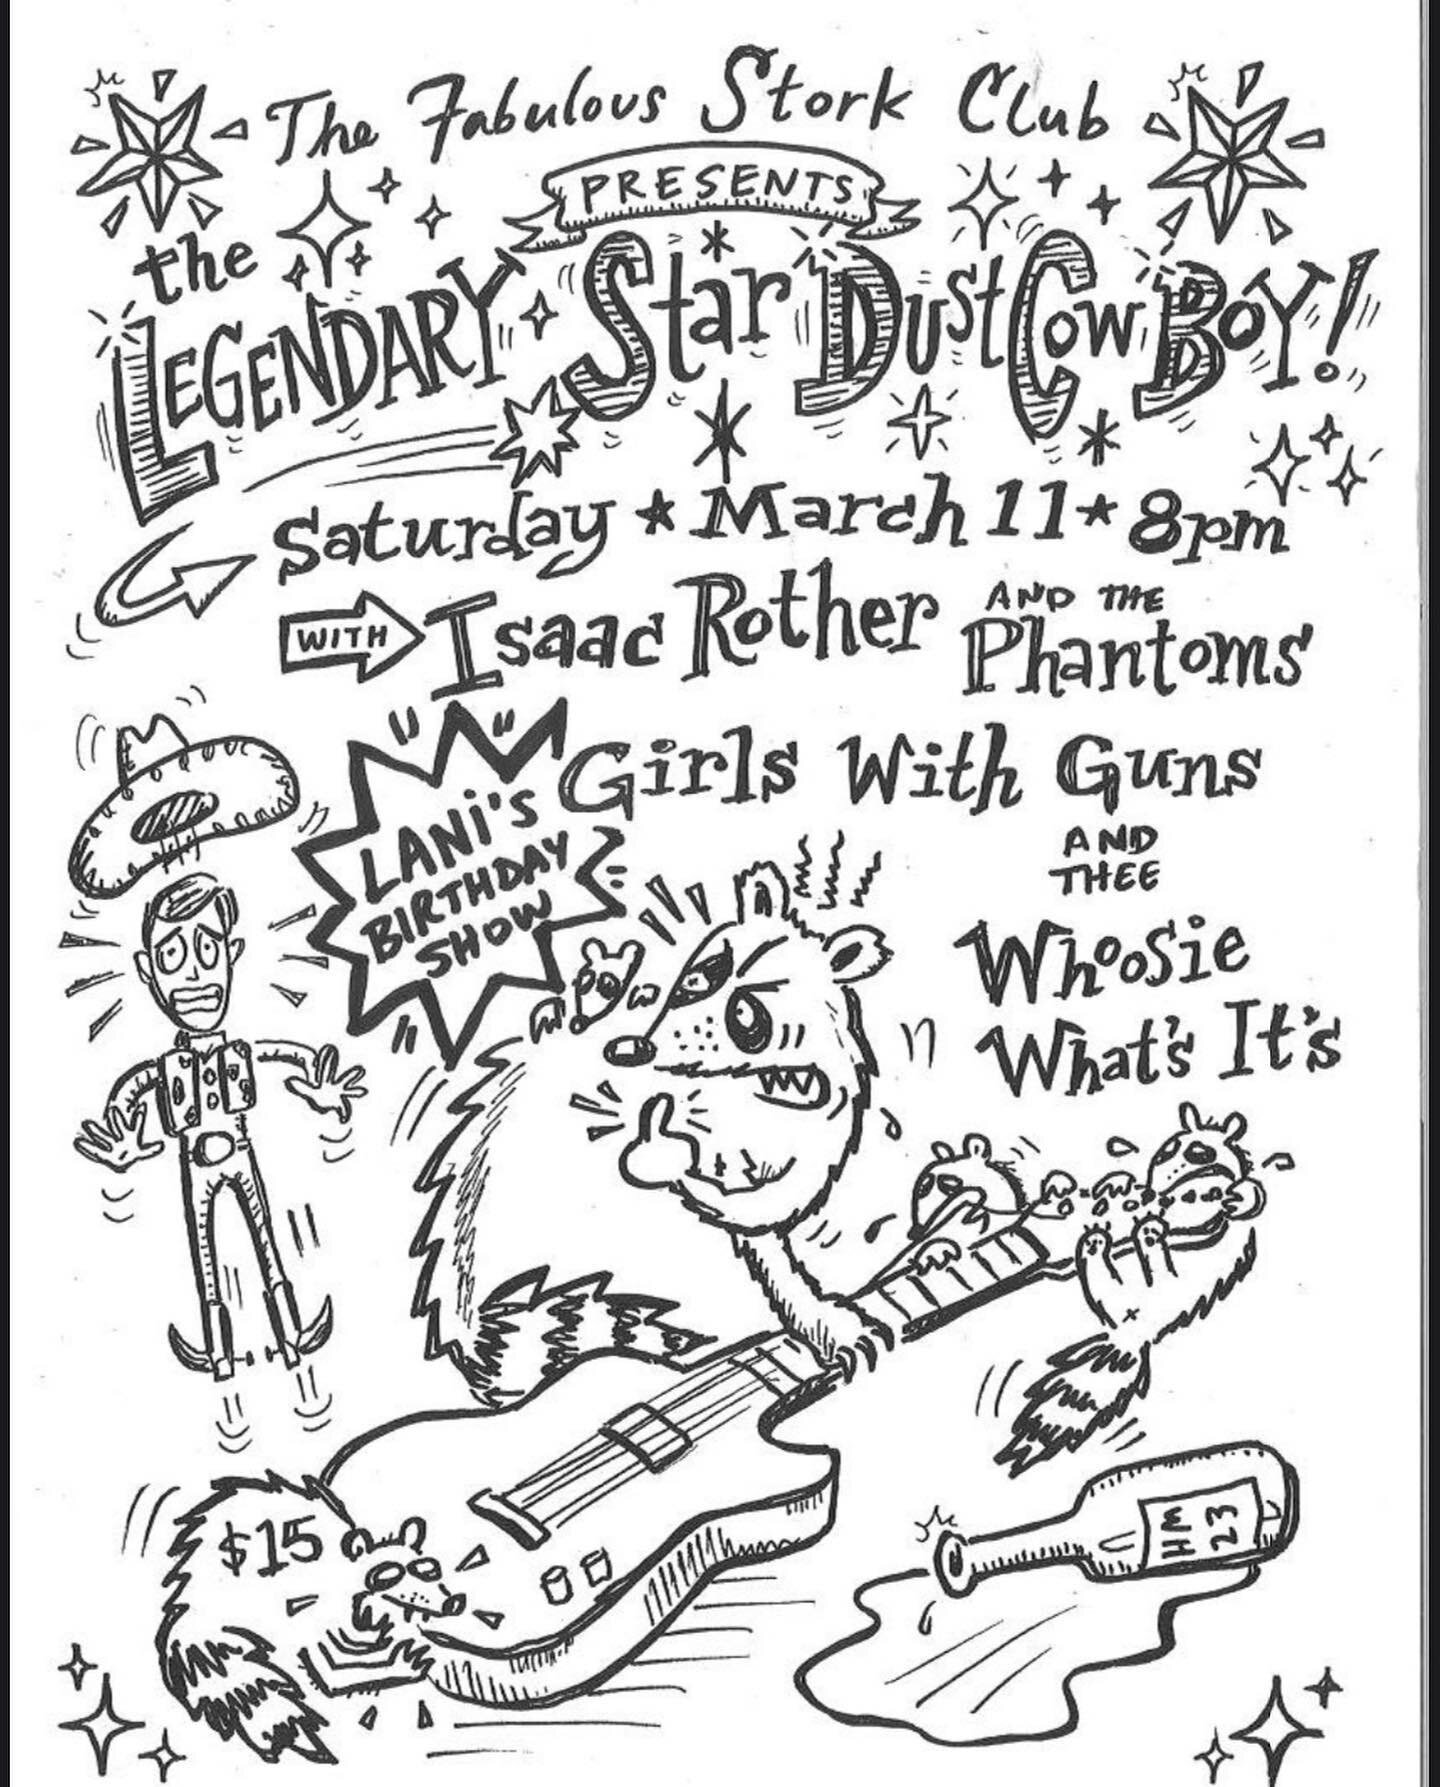 The Fabulous Stork Club
PRESENTS
the
LEGENDARY Star Dust CowBoy!
Saturday * March 11 * 8pm
WITH Isaac Rother AND THE
Phantoms
Girls With Guns
LANi'S
BIRTHDAY
SHOW
AND
THEE
Whoosie
What's It's
$15
HM
23